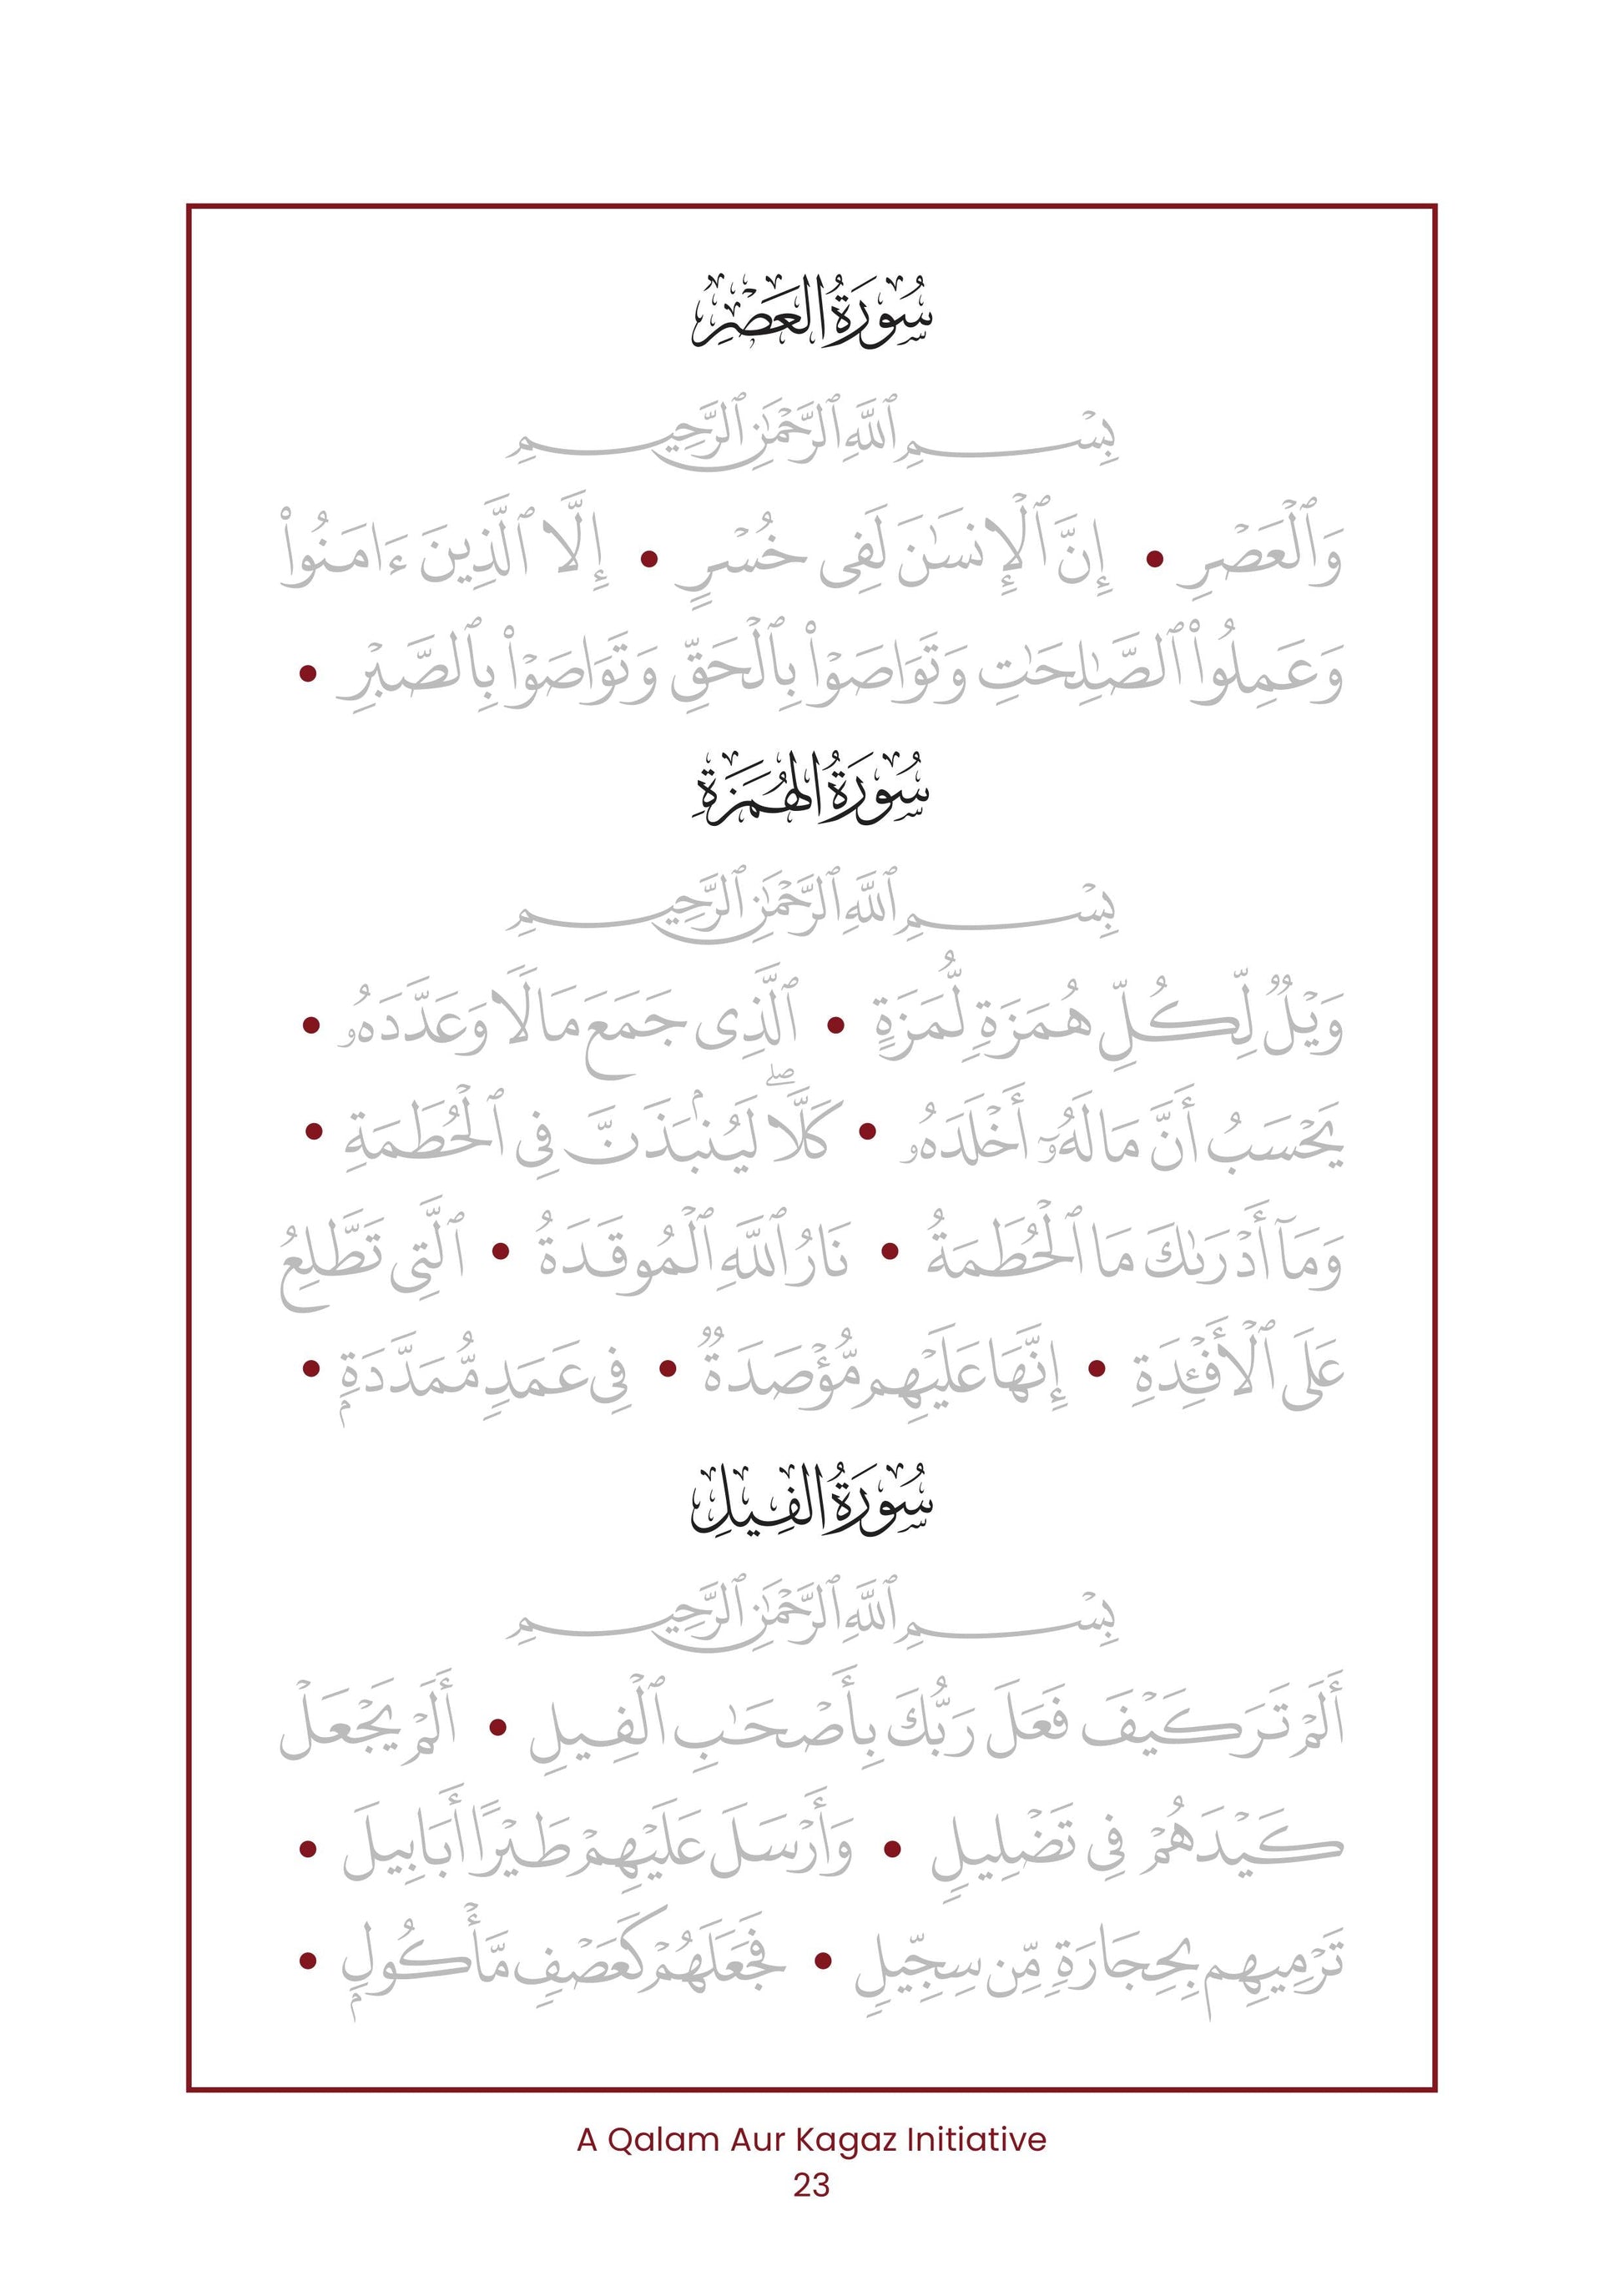 سُورَةُ العَصْرِ
بِسْمِ ٱللَّهِ ٱلرَّحْمَٰنِ ٱلرَّحِيمِ
وَٱلْعَصْرِ • إِنَّ ٱلْإِنسَٰنَ لَفِى خُسْرٍ • إِلَّا ٱلَّذِينَ ءَامَنُوا۟
وَعَمِلُوا۟ ٱلصَّٰلِحَٰتِ وَتَوَاصَوْا۟ بِٱلْحَقِّ وَتَوَاصَوْا۟ بِٱلصَّبْرِ •
سُورَةُ الهُمَزَةِ
بِسْمِ ٱللَّهِ ٱلرَّحْمَٰنِ ٱلرَّحِيمِ
وَيْلٌ لِّكُلِّ هُمَزَةٍ لُّمَزَةٍ • ٱلَّذِى جَمَعَ مَالًا وَعَدَّدَهُۥ •
يَحْسَبُ أَنَّ مَالَهُۥٓ أَخْلَدَهُۥ • كَلَّا ۖ لَيُنۢبَذَنَّ فِى ٱلْحُطَمَةِ •
وَمَآ أَدْرَىٰكَ مَا ٱلْحُطَمَةُ • نَارُ ٱللَّهِ ٱلْمُوقَدَةُ • ٱلَّتِى تَطَّلِعُ
عَلَى ٱلْأَفْـِٔدَةِ • إِنَّهَا عَلَيْهِم مُّؤْصَدَةٌ • فِى عَمَدٍ مُّمَدَّدَةٍۭ •
سُورَةُ الفِيلِ
بِسْمِ ٱللَّهِ ٱلرَّحْمَٰنِ ٱلرَّحِيمِ
أَلَمْ تَرَ كَيْفَ فَعَلَ رَبُّكَ بِأَصْحَٰبِ ٱلْفِيلِ • أَلَمْ يَجْعَلْ
كَيْدَهُمْ فِى تَضْلِيلٍ • وَأَرْسَلَ عَلَيْهِمْ طَيْرًا أَبَابِيلَ •
تَرْمِيهِم بِحِجَارَةٍ مِّن سِجِّيلٍ • فَجَعَلَهُمْ كَعَصْفٍ مَّأْكُولٍۭ •
A Qalam Aur Kagaz Initiative
23